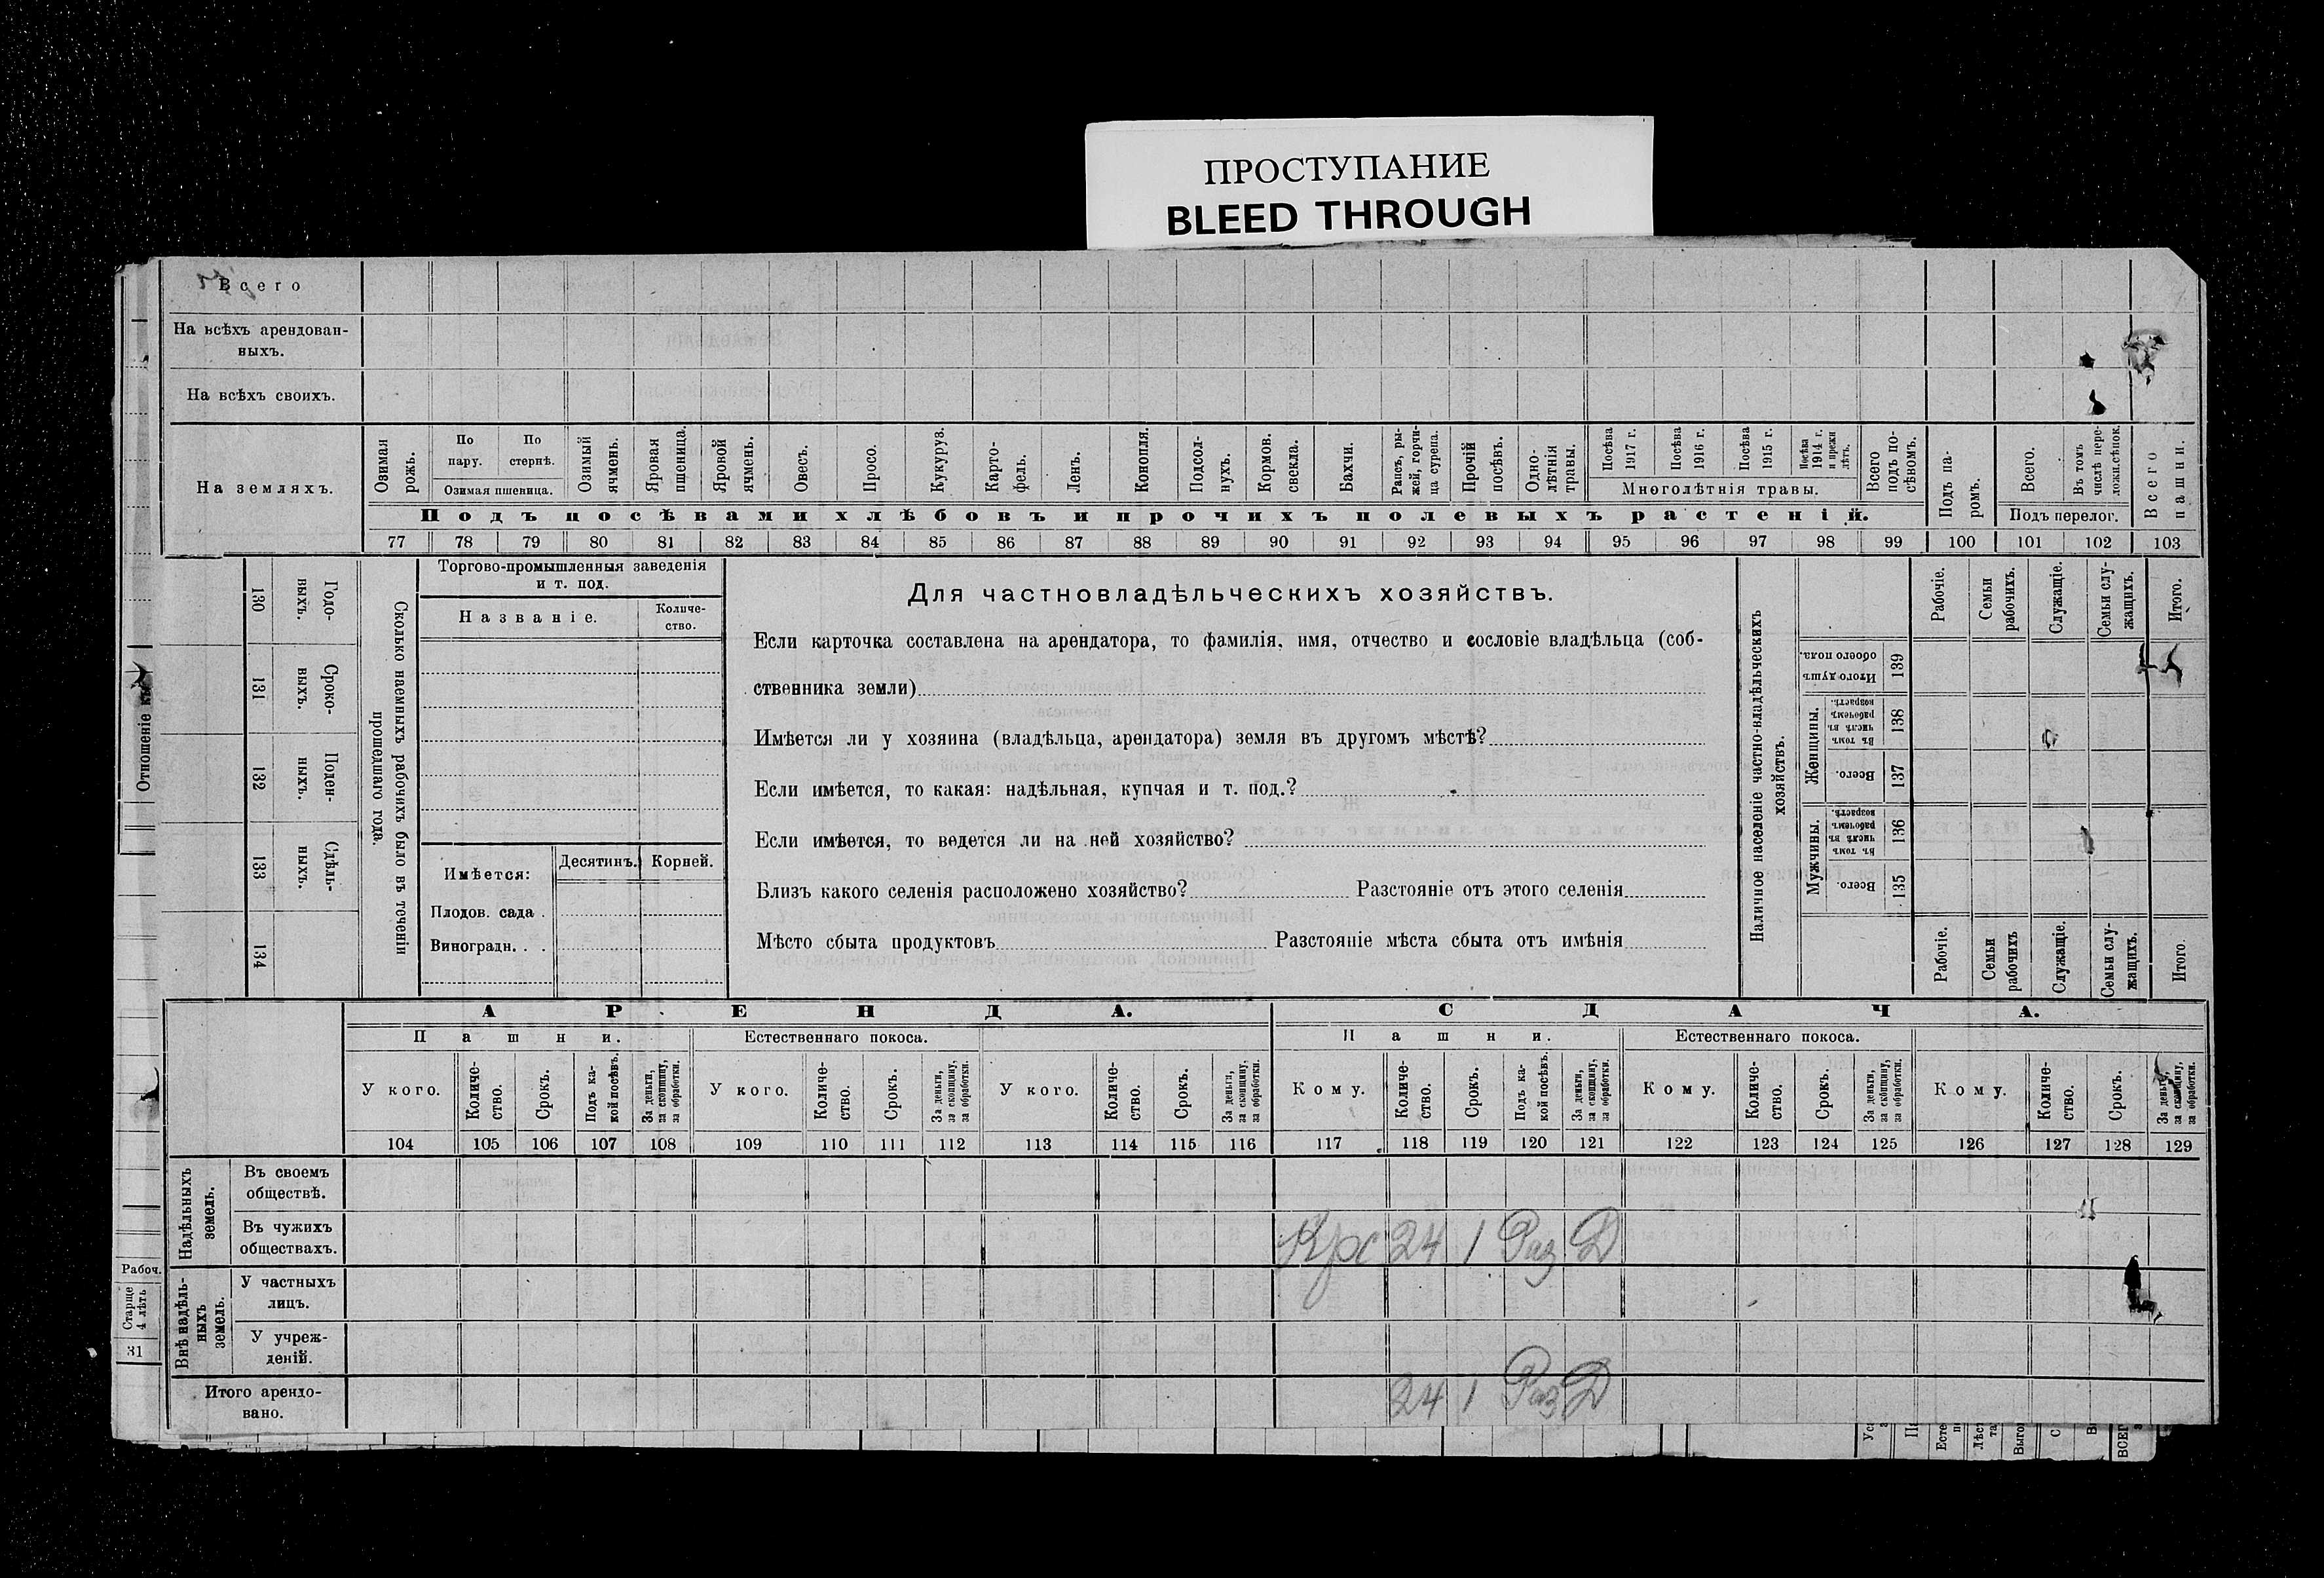 ПРОСТУПАНИЕ
BLEED THROUGH
Всего
На всѣхъ арендован-
ныхъ.
На всѣхъ своихъ.
На земляхъ.
Озимая рожь.
По пару.
По стернѣ.
Озимая пшеница.
Озимый ячмень.
Яровая пшеница.
Яровой ячмень.
Овесъ.
Просо.
Кукуруз.
Карто-
фель.
Ленъ.
Конопля.
Подсол-
нухъ.
Кормов. свекла.
Бахчи.
Рапсъ, ры-
жей, горчи-
ца сурепа.
Прочій посѣвъ.
Одно-
лѣтнія травы.
Посѣва 1917 г.
Посѣва 1916 г.
Посѣва 1915 г.
Посѣва 1914 г. и прежн лѣтъ.
Многолѣтнія травы.
Всего подъ по-
сѣвомъ.
Подъ посѣвами хлѣбовъ и прочихъ полевыхъ растеній.
Подъ па-
ромъ.
Всего.
Въ томъ числѣ пере-
ложн.сѣнок.
Подъ перелог.
Всего пашни.
77 78 79 80 81 82 83 84 85 86 87 88 89 90 91 92 93 94 95 96 97 98 99 100 101 102 103
Отношеніе къ
130
Годо-
выхъ.
131
Сроко-
выхъ.
132
Поден-
ныхъ.
133
Сдѣль-
ныхъ.
134
Сколько наемныхъ рабочихъ было въ теченіи
прошедшаго года.
Торгово-промышленныя заведенія
и т. под.
Названіе.
Количе-
ство.
Имѣется:
Десятинъ.
Корней.
Плодов. сада .
Виноградн. . .
Для частновладѣльческихъ хозяйствъ.
Если карточка составлена на арендатора, то фамилія, имя, отчество и сословіе владѣльца (соб-
ственника земли)
Имѣется ли у хозяина (владѣльца, арендатора) земля въ другомъ мѣстѣ?
Если имѣется, то какая: надѣльная, купчая и т. под.?
Если имѣется, то ведется ли на ней хозяйство?
Близъ какого селенія расположено хозяйство? Разстояніе отъ этого селенія
Мѣсто сбыта продуктовъ Разстояніе мѣста сбыта отъ имѣнія
Наличное населеніе частно-владѣльческихъ
хозяйствъ.
Рабочіе.
Семьи рабочихъ.
Служащіе.
Семьи слу-
жащихъ.
Итого.
Итого душъ обоего пола.
139
Женщины.
Въ томъ числѣ въ рабочемъ возрастѣ.
138
Всего.
137
Мужчины.
Въ томъ числѣ въ рабочемъ возрастѣ.
136
Всего.
135
Рабочіе.
Семьи рабочихъ
Служащіе.
Семьи слу-
жащихъ.
Итого.
АРЕНДА.
СДАЧА.
Пашни.
Естественнаго покоса.
Пашни.
Естественнаго покоса.
У кого.
Количе-
ство.
Срокъ.
Подъ ка-
кой посѣвъ.
За деньги, за скопщину, за обработки.
У кого.
Количе-
ство.
Срокъ.
За деньги, за скопщину, за обработки.
У кого.
Количе-
ство.
Срокъ.
За деньги, за скопщину, за обработки.
Кому.
Количе-
ство.
Срокъ.
Подъ ка-
кой посѣвъ.
За деньги, за скопщину, за обработки.
Кому.
Количе-
ство.
Срокъ.
За деньги, за скопщину, за обработки.
Кому.
Количе-
ство.
Срокъ.
За деньги, за скопщину, за обработки.
104 105 106 107 108 109 110 111 112 113 114 115 116 117 118 119 120 121 122 123 124 125 126 127 128 129
Надѣльныхъ земель.
Въ своемъ
обществѣ.
Въ чужихъ
обществахъ.
Крс 24 1 Раз Д
Внѣ надѣль-
ныхъ земель.
У частныхъ
лицъ.
У учреж-
деній.
Итого арендо-
вано.
24 1 Раз Д
Рабоч.
Старше
4 лѣтъ
31